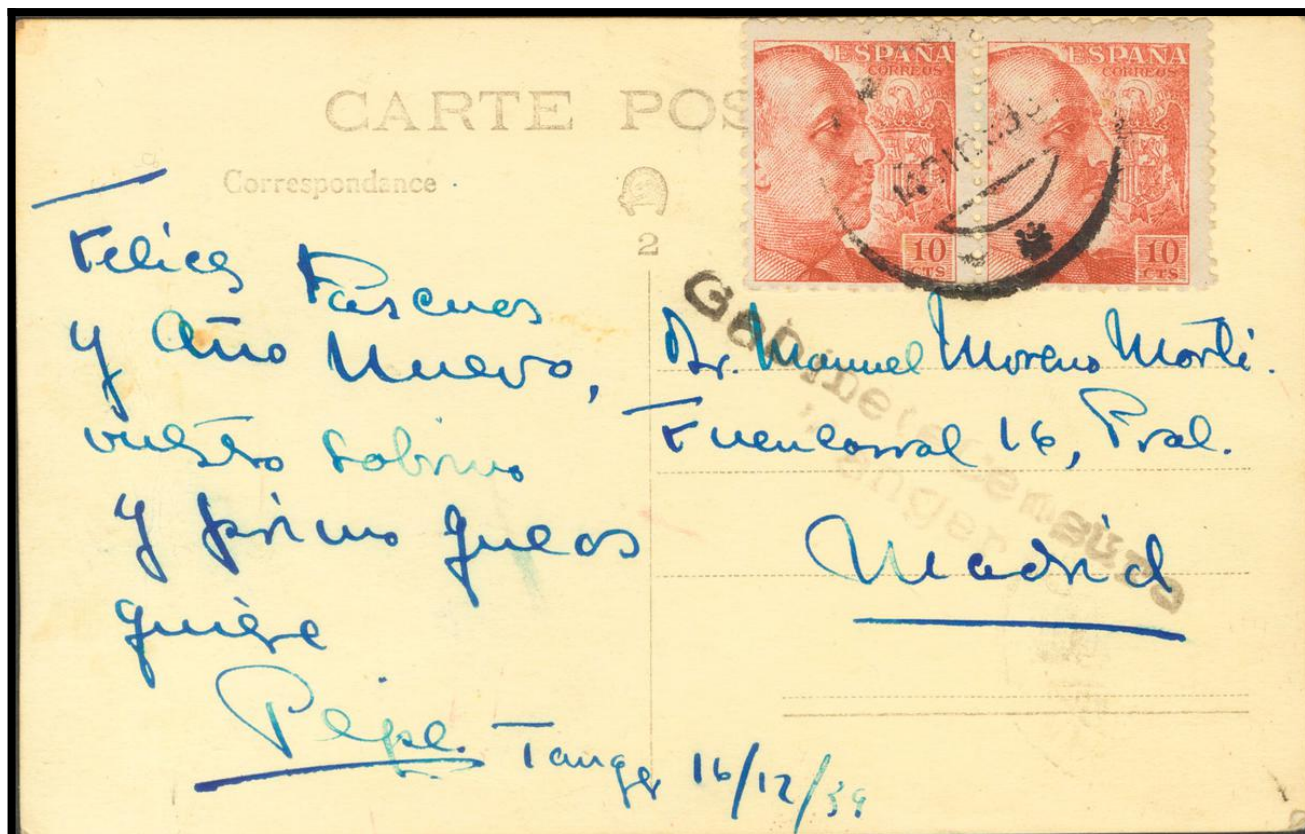 CARTE POS
Correspondance
2
ESPAÑA
CORREOS
10
CTS
ESPAÑA
CORREOS
10
CTS
Felices Pascuas
y Año Nuevo,
vuestro sobrino
y primo que os
quiere
Pepe.
Tanger 16/12/39
Dr. Manuel Moreno Marti.
Fuencarral 16, Pral.
Madrid
Censura